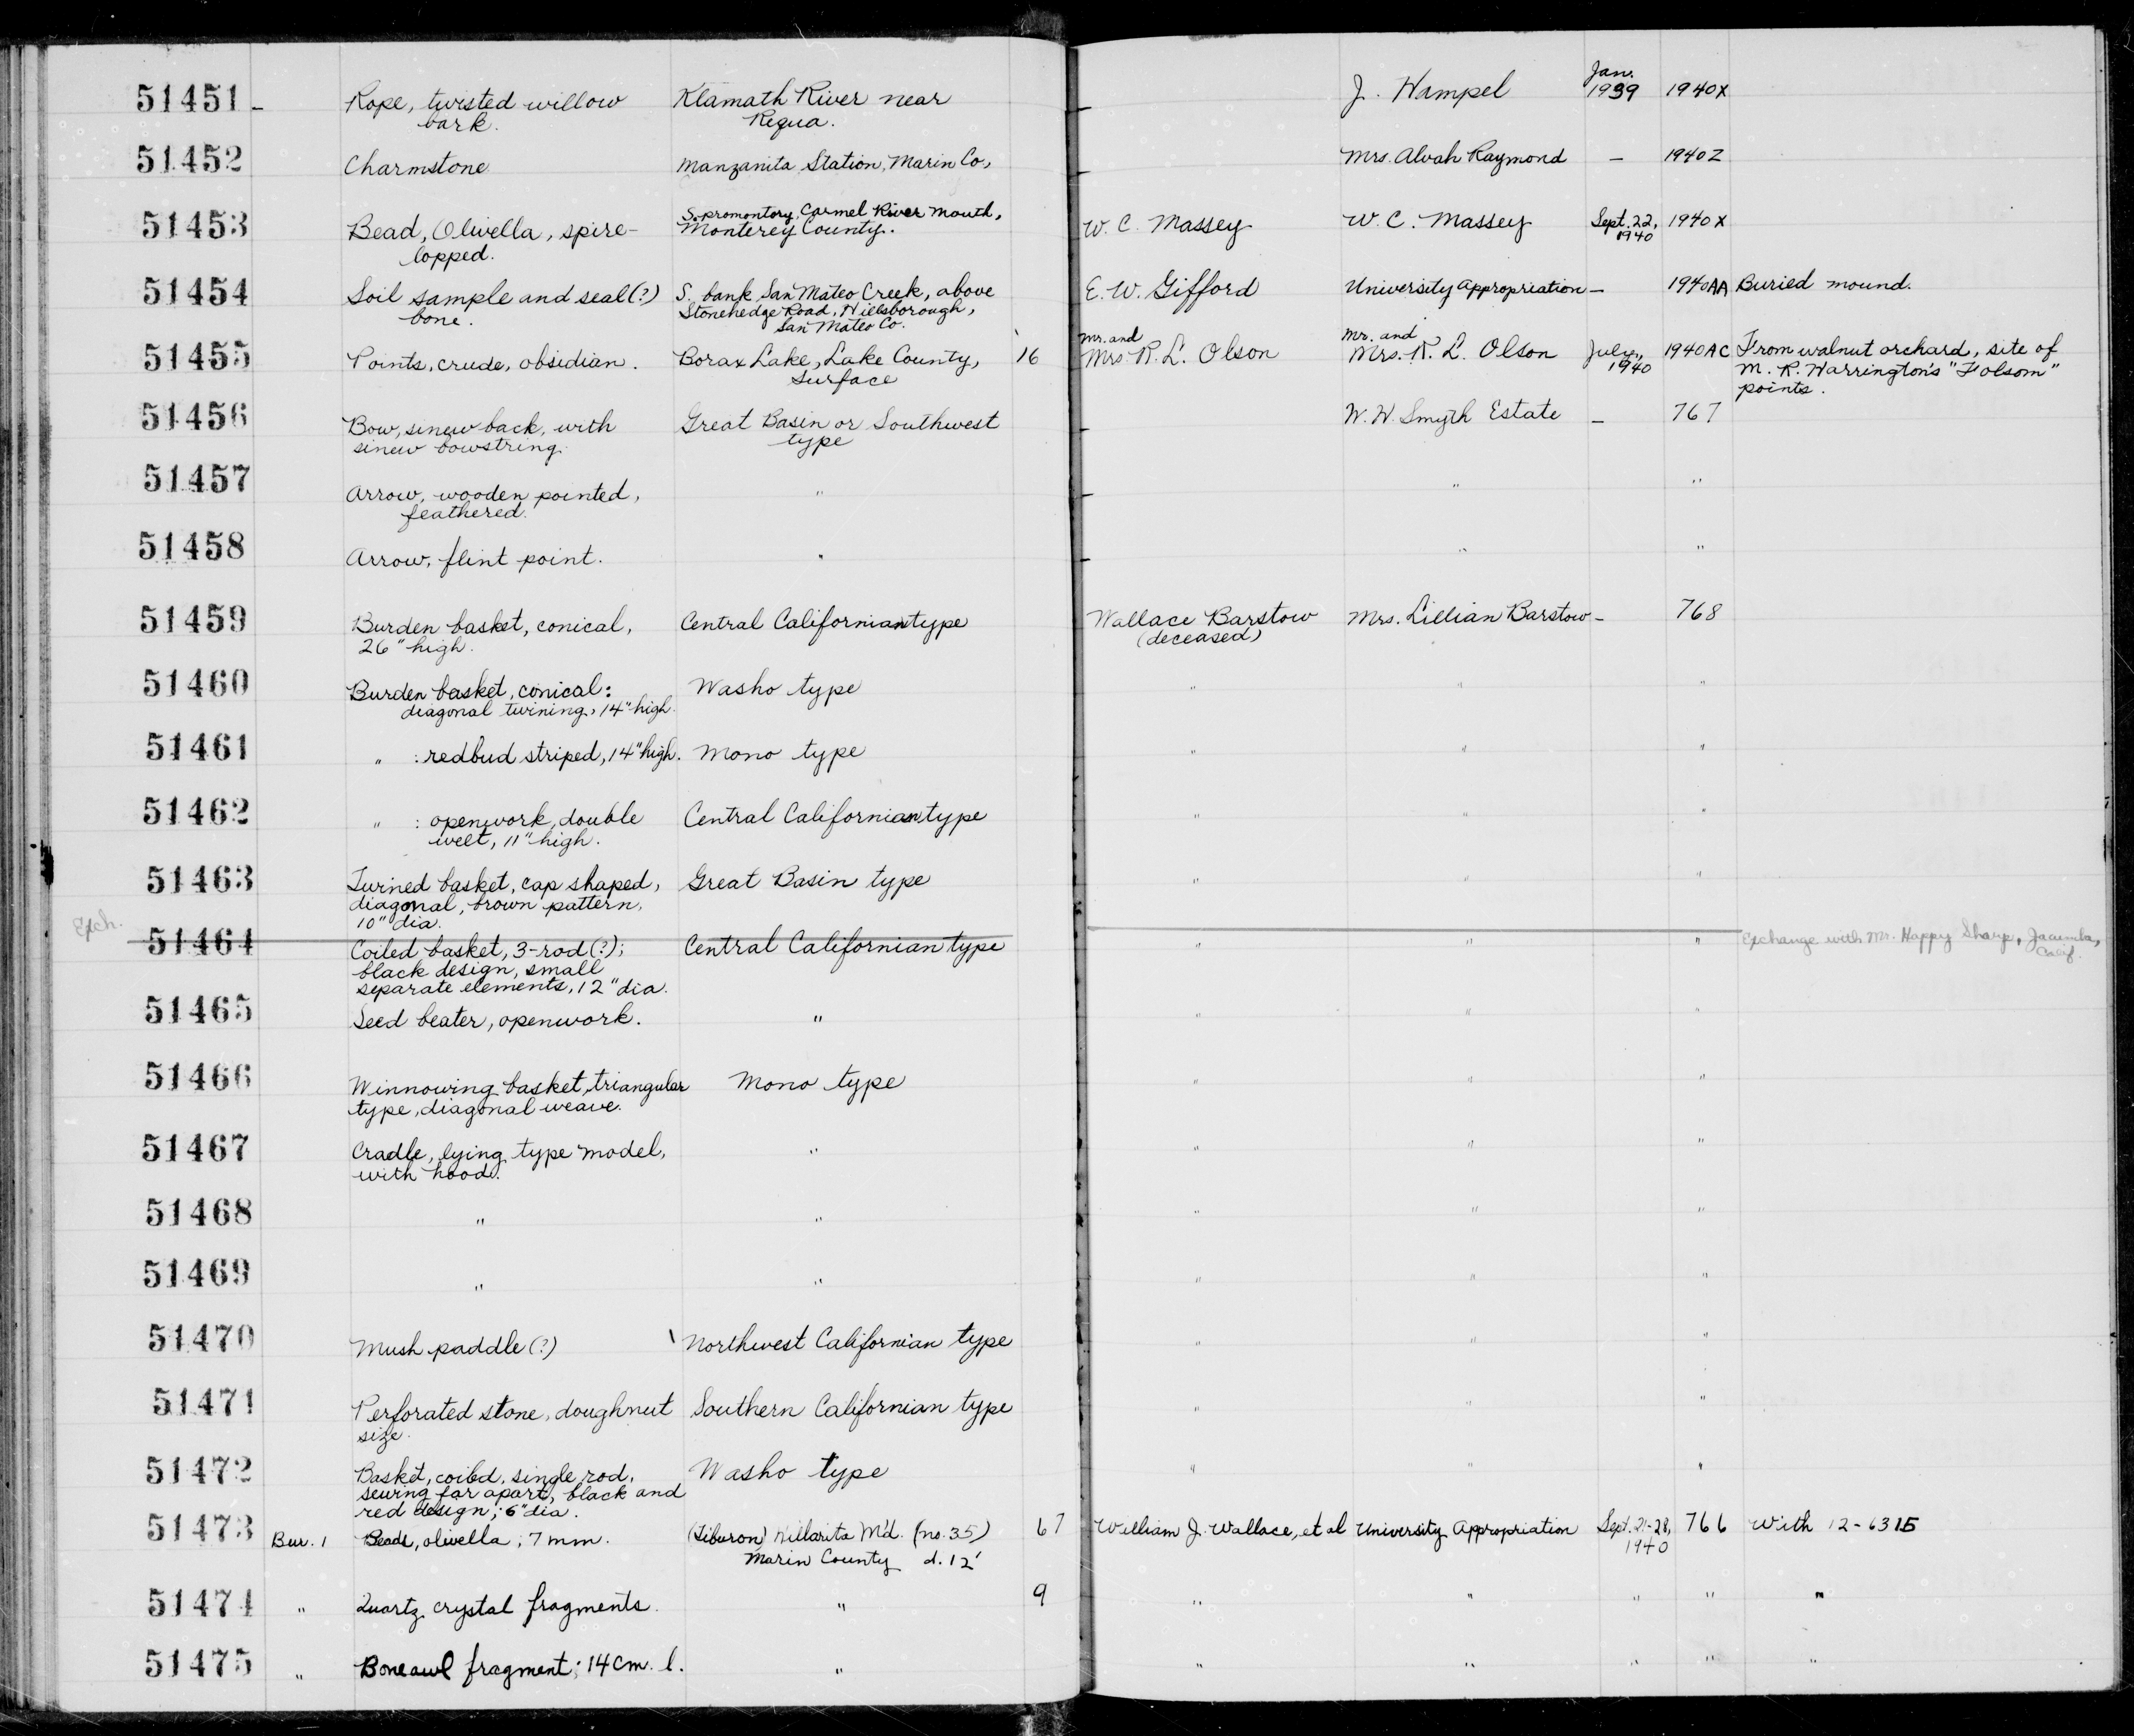 51451 - Rope, twisted willow Klamath River near - J. Hampel Jan. 1939 1940X
bark. Requa.
51452 Charmstone Manzanita Station, Marin Co., - Mrs. Alvah Raymond - 1940Z
51453 Bead, Olivella, spire- S. promontory, Carmel River mouth, W. C. Massey W. C. Massey Sept. 22, 1940X
lopped. Monterey County. 1940
51454 Soil sample and seal(?) S. bank San Mateo Creek, above E. W. Gifford University Appropriation - 1940AA Buried mound.
bone. Stonehedge Road, Hillsborough,
San Mateo Co.
51455 Points, crude, obsidian. Borax Lake, Lake County, 16 Mr. and Mrs R. L. Olson Mr. and Mrs. R. L. Olson July, 1940AC From walnut orchard, site of
surface 1940 M. R. Harrington's "Folsom"
points.
51456 Bow, sinew back, with Great Basin or Southwest - W. W. Smyth Estate - 767
sinew bowstring. type
51457 Arrow, wooden pointed, " - " "
feathered.
51458 Arrow, flint point. " - " "
51459 Burden basket, conical, Central Californian type Wallace Barstow Mrs. Lillian Barstow - 768
26" high. (deceased)
51460 Burden basket, conical: Washo type " " "
diagonal twining, 14" high.
51461 " : redbud striped, 14" high. Mono type " " "
51462 " : openwork, double Central Californian type " " "
welt, 11" high.
51463 Twined basket, cap shaped, Great Basin type " " "
diagonal, brown pattern,
10" dia.
Exch. 51464 Coiled basket, 3-rod(?); Central Californian type " " " Exchange with Mr. Happy Sharp, Jacumba,
black design, small Calif.
separate elements, 12" dia.
51465 Seed beater, openwork. " " " "
51466 Winnowing basket, triangular Mono type " " "
type, diagonal weave.
51467 Cradle, lying type model, " " " "
with hood.
51468 " " " " "
51469 " " " " "
51470 Mush paddle(?) Northwest Californian type " " "
51471 Perforated stone, doughnut Southern Californian type " " "
size.
51472 Basket, coiled, single rod, Washo type " " "
sewing far apart, black and
red design; 6" dia.
51473 Bur. 1 Beads, olivella; 7 mm. (Tiburon) Md. (no. 35) 67 William J. Wallace, et al University Appropriation Sept. 21-28, 766 With 12-6315
Marin County d. 12' 1940
51474 " Quartz crystal fragments. " 9 " " " " "
51475 " Bone awl fragment; 14 cm. l. " " " " " "